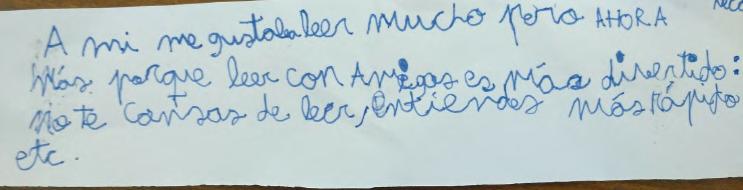 A mi me gustaba leer mucho pero AHORA
Más porque leer con Amigas es más divertido:
no te cansas de leer, entiendes más rápido
etc.